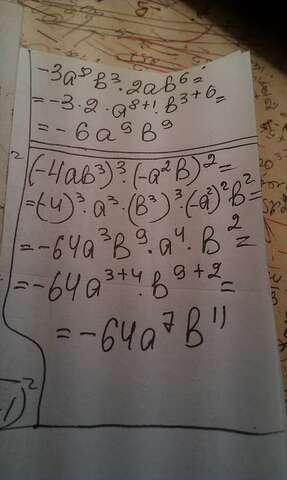 -3a⁸b³·2ab⁶=
=-3·2·a⁸⁺¹·b³⁺⁶=
=-6a⁹b⁹
(-4ab³)³·(-a²b)²=
=(-4)³·a³·(b³)³·(-a²)²·b²=
=-64a³b⁹·a⁴·b²=
=-64a³⁺⁴·b⁹⁺²=
=-64a⁷b¹¹